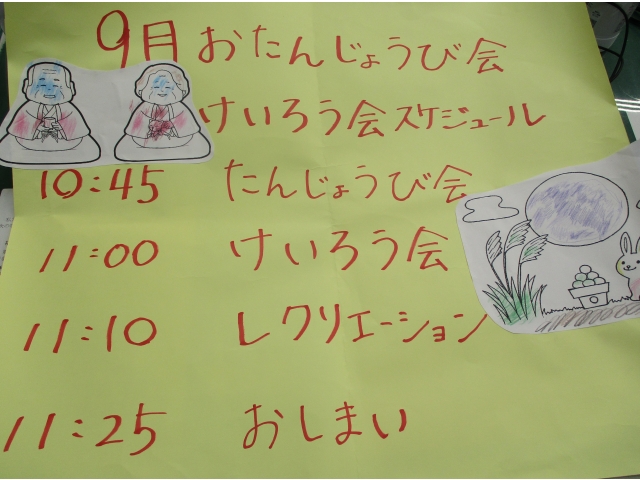 9月 おたんじょうび会
けいろう会 スケジュール
10:45 たんじょうび会
11:00 けいろう会
11:10 レクリエーション
11:25 おしまい